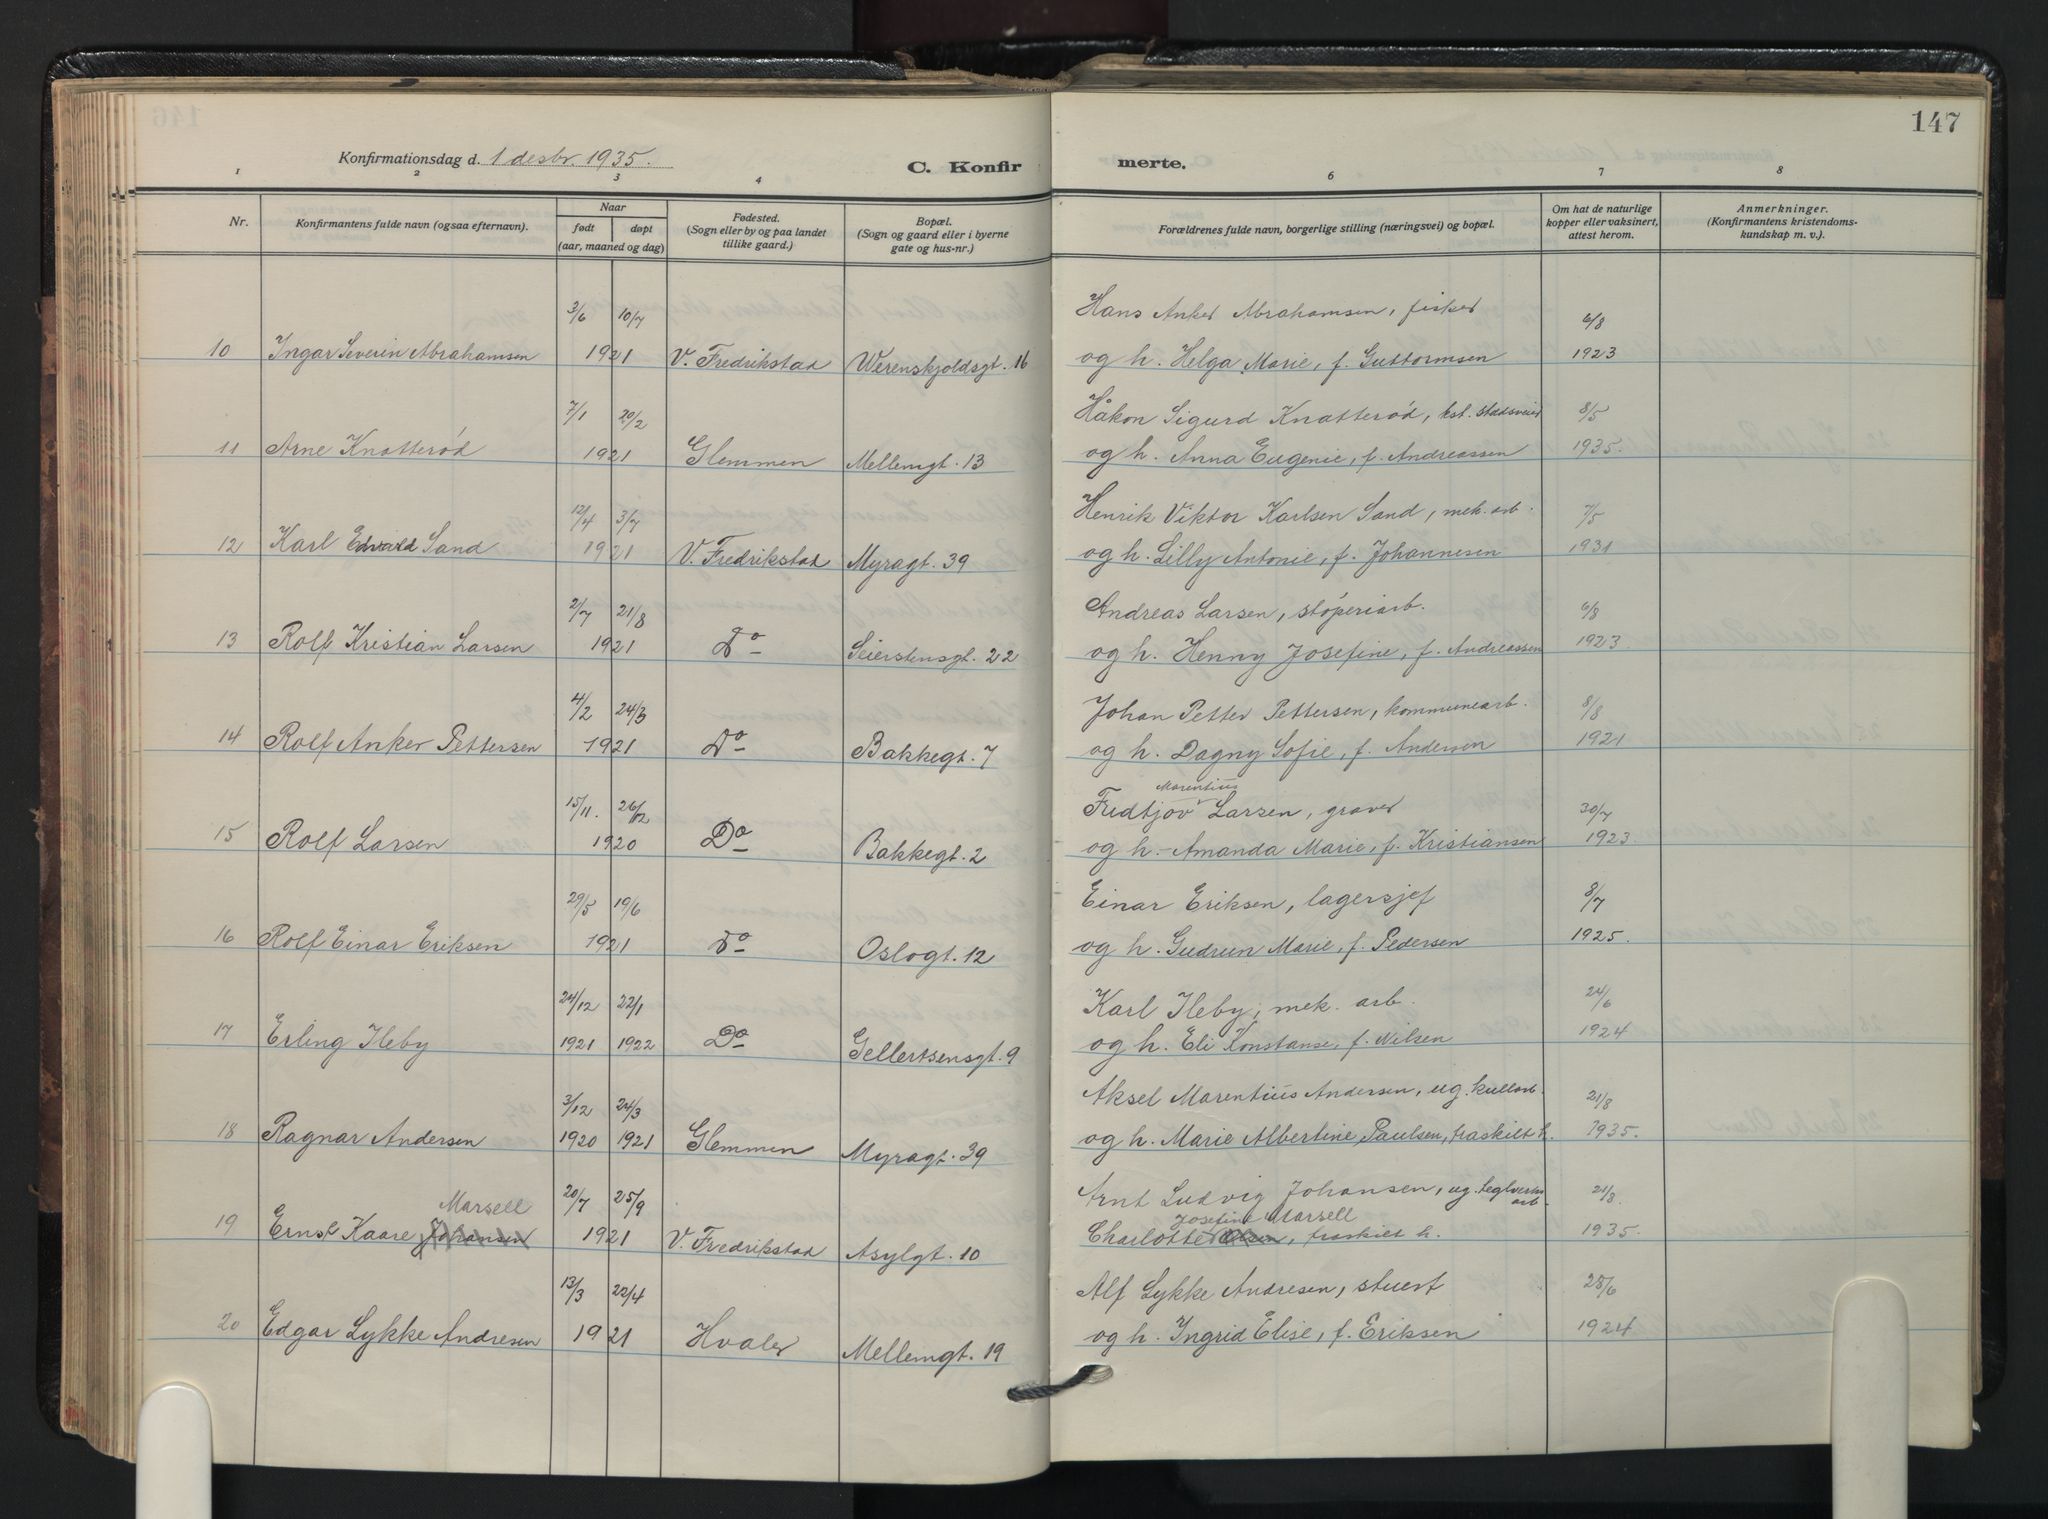 147
Konfirmationsdag d. 1 desbr. 1935.
C. Konfir
merte.
1 2 3 4 6 7 8
Nr.
Konfirmantens fulde navn (ogsaa efternavn).
Naar
født døpt
(aar, maaned og dag)
Fødested.
(Sogn eller by og paa landet
tillike gaard.)
Bopæl.
(Sogn og gaard eller i byerne
gate og hus-nr.)
Forældrenes fulde navn, borgerlige stilling (næringsvei) og bopæl.
Om hat de naturlige
kopper eller vaksinert,
attest herom.
Anmerkninger.
(Konfirmantens kristendoms-
kundskap m. v.).
3/6 10/7 Hans Anker Abrahamsen, fisker 6/8
10 Ingar Severin Abrahamsen 1921 V. Fredrikstad Werenskjoldsgt. 16 og h. Helga Marie, f. Guttormsen 1923
7/1 20/2 Håkon Sigurd Knatterød, kst. stadsveier 8/5
11 Arne Knatterød 1921 Glemmen Mellemgt. 13 og h. Anna Eugenie, f. Andreassen 1935.
12/4 3/7 Henrik Viktor Karlsen Sand, mek. arb. 7/5
12 Karl Edvald Sand 1921 V. Fredrikstad Myragt. 39 og h. Lilly Antonie, f. Johannesen 1931
2/7 21/8 Andreas Larsen, støperiarb. 6/8
13 Rolf Kristian Larsen 1921 Do Seierstensgt. 22 og h. Henny Josefine, f. Andreassen 1923.
4/2 24/3 Johan Petter Pettersen, kommunearb. 8/8
14 Rolf Anker Pettersen 1921 Do Bakkegt. 7 og h. Dagny Sofie, f. Andersen 1921
Marentius
15/11. 26/12 Fredtjov Larsen, graver 30/7
15 Rolf Larsen 1920 Do Bakkegt. 2 og h. Amanda Marie, f. Kristiansen 1923.
29/5 19/6 Einar Eriksen, lagersjef 8/7
16 Rolf Einar Eriksen 1921 Do Oslogt. 12 og h. Gudrun Marie, f. Pedersen 1925.
24/12 22/1 Karl Ileby, mek. arb. 24/6
17 Erling Ileby 1921 1922 Do Gellertsensgt. 9 og h. Eli Konstanse, f. Nilsen 1924
3/12 24/3 Aksel Marentius Andersen, ug. kullarb. 21/8
18 Ragnar Andersen 1920 1921 Glemmen Myragt. 39 og h. Marie Albertine Paulsen, fraskilt h. 1935.
Marsell 20/7 25/9 Arnt Ludvig Johansen, ug. teglverks 21/8.
arb.
Josefine Marsell
19 Ernst Kaare Johansen 1921 V. Fredrikstad Asylgt. 10 Charlotte Olsen, fraskilt h. 1935.
13/3 22/4 Alf Lykke Andresen, stuert 25/6
20 Edgar Lykke Andresen 1921 Hvaler Mellemgt. 19 og h. Ingrid Elise, f. Eriksen 1924